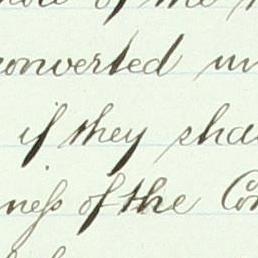 of the
converted un
if they sha
ness of the Con